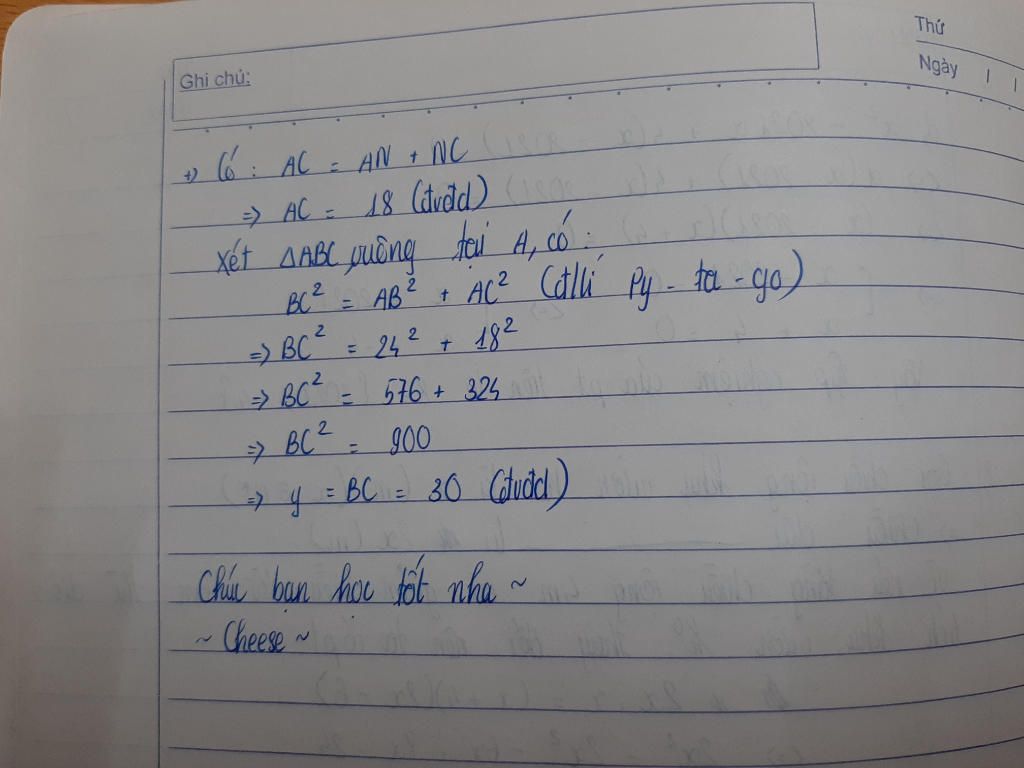 Thứ
Ghi chú:
Ngày
+) Có : AC = AN + NC
=> AC = 18 (đvđd)
Xét △ABC vuông tại A, có :
BC² = AB² + AC² (đ/lí Py - ta - go)
=> BC² = 24² + 18²
=> BC² = 576 + 324
=> BC² = 900
=> y = BC = 30 (đvđd)
Chúc bạn học tốt nha ~
~ Cheese ~